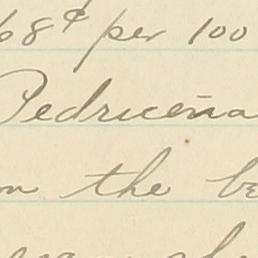 68¢ per 100
Pedriceña
the